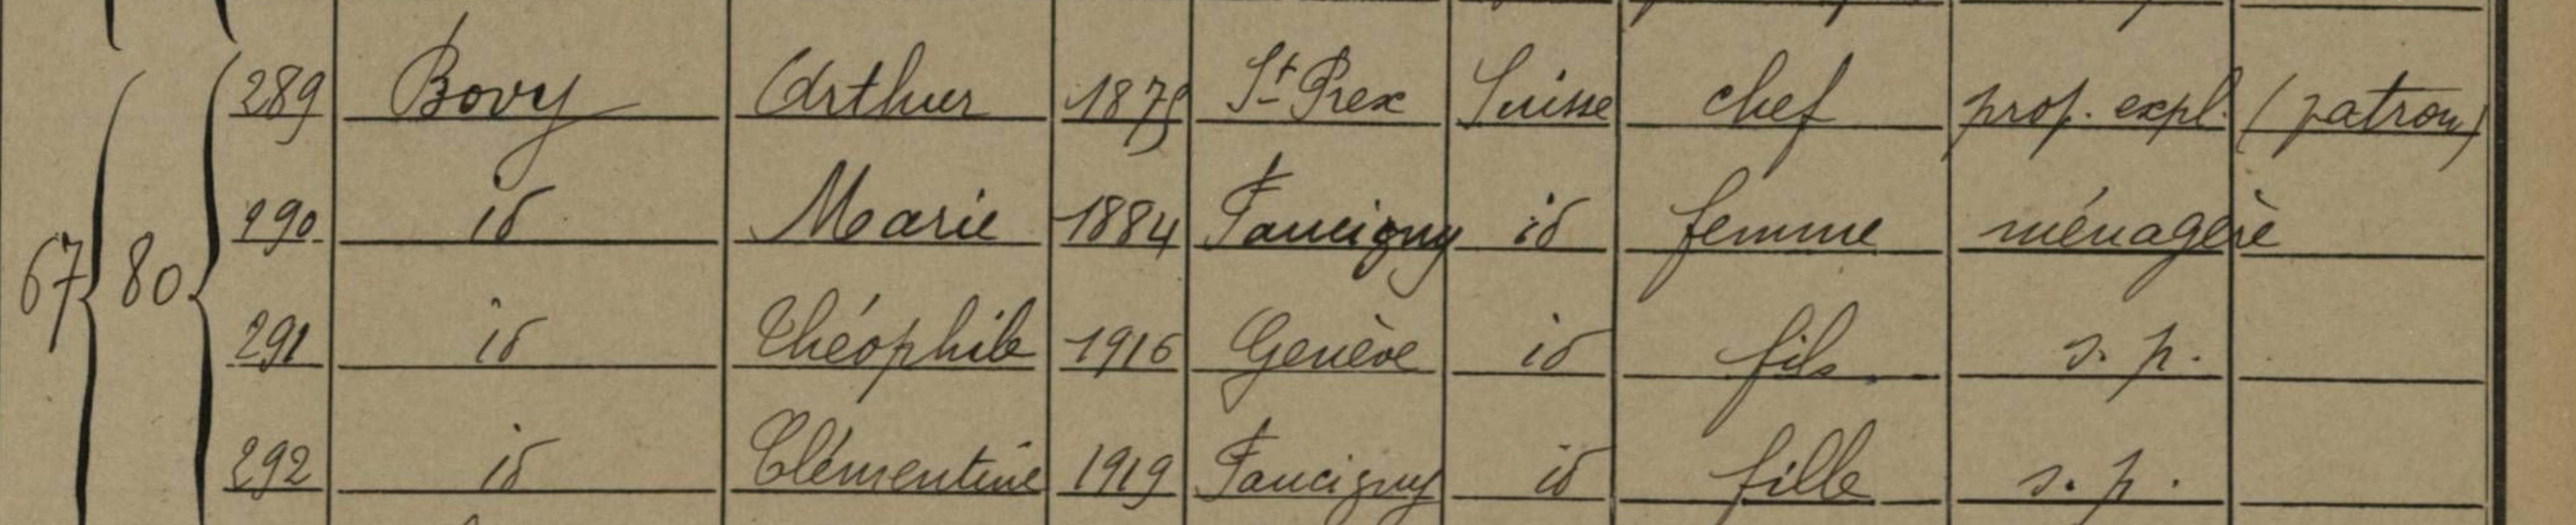 289 Bovy Arthur 1879 St Prex Suisse chef prop. expl. (patron)
290 id Marie 1884 Faucigny id femme ménagère
67 80
291 id Théophile 1916 Genève id fils s. p.
292 id Clémentine 1919 Faucigny id fille s. p.